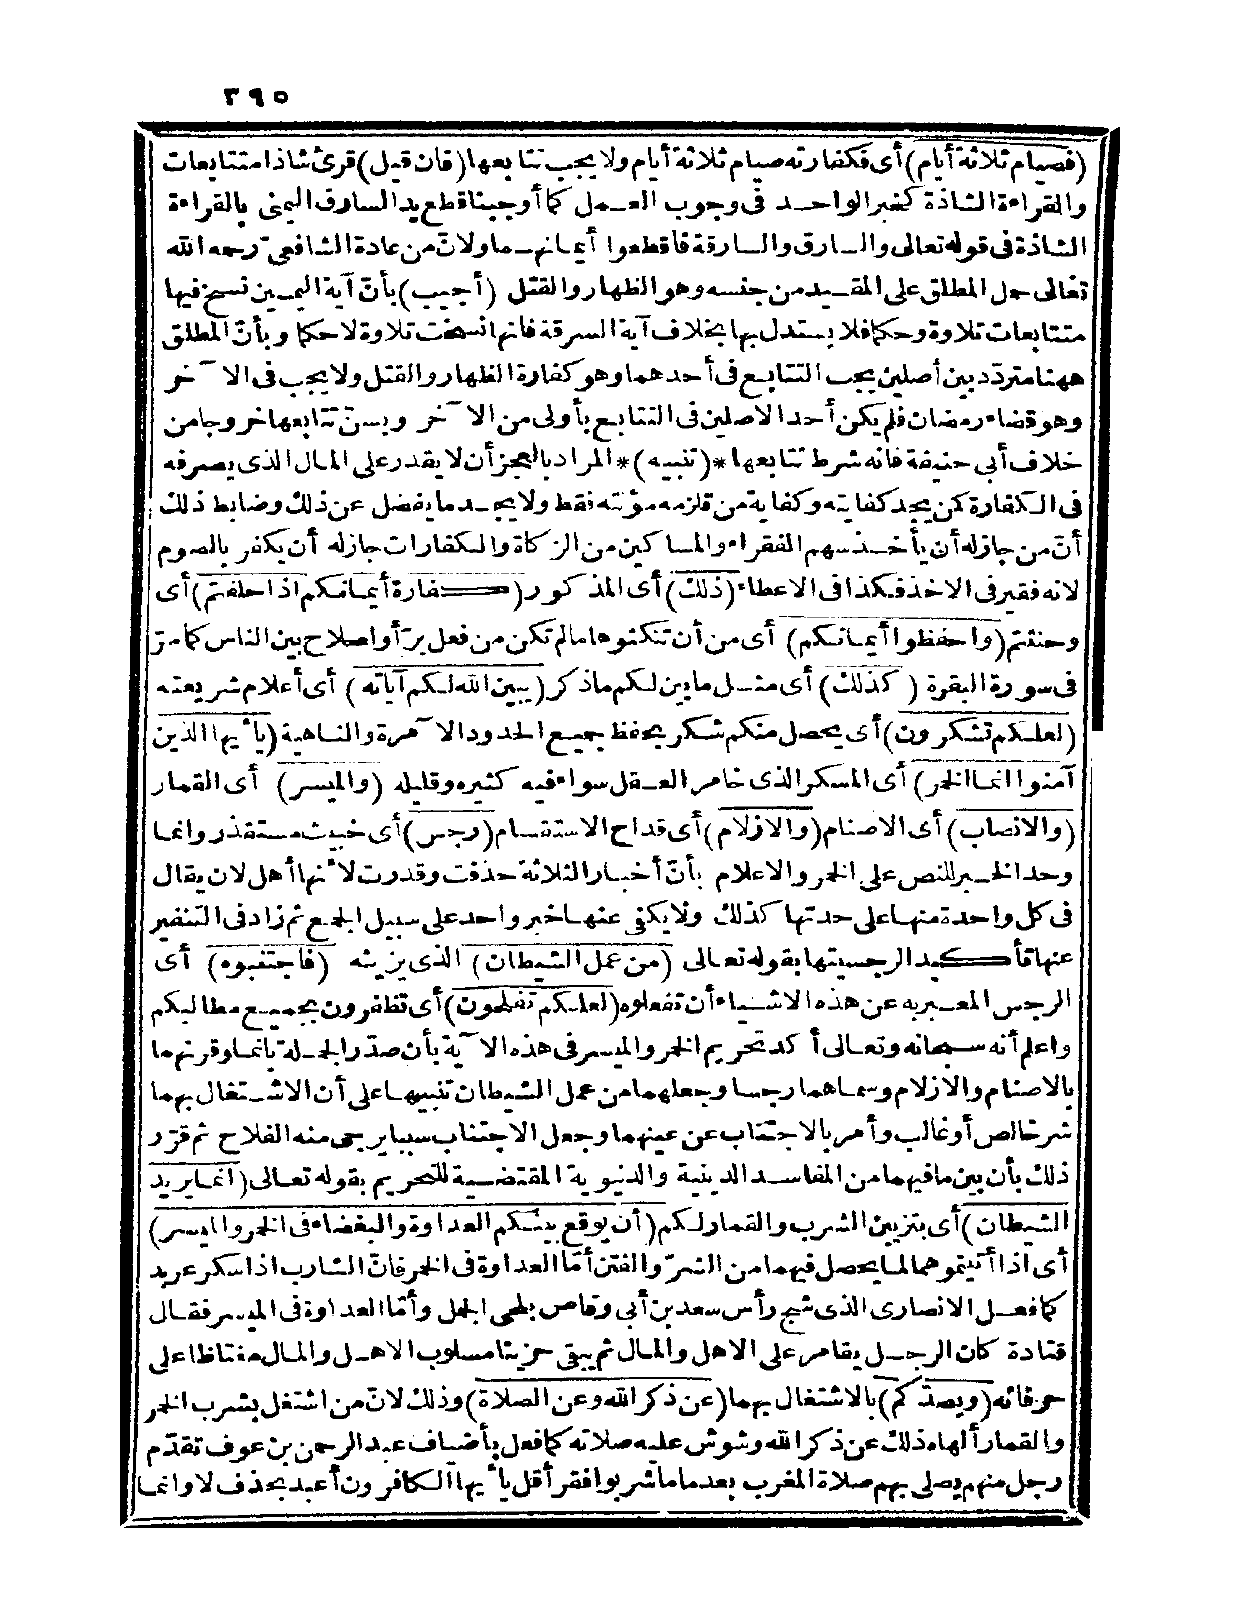 ٣٩٥
(فصيام ثلاثة أيام) أى فكفارته صيام ثلاثة أيام ولا يجب تتابعها (فان قيل) قرئ شاذا متتابعات
والقراءة الشاذة كخبر الواحد فى وجوب العمل كما أوجبنا قطع يد السارق اليمنى بالقراءة
الشاذة فى قوله تعالى والسارق والسارقة فاقطعوا أيمانهما ولانّ من عادة الشافعىّ رحمه الله
تعالى حمل المطلق على المقيد من جنسه وهو الظهار والقتل (أجيب) بأنّ آية اليمين نسخ فيها
متتابعات تلاوة وحكما فلا يستدل بها بخلاف آية السرقة فانها نسخت تلاوة لا حكما وبأنّ المطلق
ههنا متردّد بين أصلين يجب التتابع فى أحدهما وهو كفارة الظهار والقتل ولا يجب فى الآخر
وهو قضاء رمضان فلم يكن أحد الاصلين فى التتابع بأولى من الآخر ويسنّ تتابعها خروجا من
خلاف أبى حنيفة فانه شرط تتابعها *(تنبيه)* المراد بالعجز أن لا يقدر على المال الذى يصرفه
فى الكفارة كمن يجد كفايته وكفاية من تلزمه مؤنته فقط ولا يجد ما يفضل عن ذلك وضابط ذلك
أنّ من جاز له أن يأخذ سهم الفقراء والمساكين من الزكاة والكفارات جاز له أن يكفر بالصوم
لانه فقير فى الاخذ فكذا فى الاعطاء (ذلك) أى المذكور (كفارة أيمانكم اذا حلفتم) أى
وحنثتم (واحفظوا أيمانكم) أى من أن تنكثوها ما لم تكن من فعل برّ أو اصلاح بين الناس كما مرّ
فى سورة البقرة (كذلك) أى مثل ما بين لكم ما ذكر (يبين الله لكم آياته) أى أعلام شريعته
(لعلكم تشكرون) أى يحصل منكم شكر بحفظ جميع الحدود الآمرة والناهية (يأيها الذين
آمنوا انما الخمر) أى المسكر الذى خامر العقل سواء فيه كثيره وقليله (والميسر) أى القمار
(والانصاب) أى الاصنام (والازلام) أى قداح الاستقسام (رجس) أى خبيث مستقذر وانما
وحد الخبر للنص على الخمر والاعلام بأنّ أخبار الثلاثة حذفت وقدرت لأنها أهل لان يقال
فى كل واحدة منها على حدتها كذلك ولا يكفى عنها خبر واحد على سبيل الجمع ثم زاد فى التنفير
عنها تأكيد الرجسيتها بقوله تعالى (من عمل الشيطان) الذى يزينه (فاجتنبوه) أى
الرجس المعبر به عن هذه الاشياء أن تفعلوه (لعلكم تفلحون) أى تظفرون بجميع مطالبكم
واعلم أنه سبحانه وتعالى أكد تحريم الخمر والميسر فى هذه الآية بأن صدّر الجملة بانما وقرنهما
بالاصنام والازلام وسماهما رجسا وجعلهما من عمل الشيطان تنبيها على أن الاشتغال بهما
شر خالص أو غالب وأمر بالاجتناب عن عينهما وجعل الاجتناب سببا يرجى منه الفلاح ثم قرّر
ذلك بأن بين ما فيهما من المفاسد الدينية والدنيوية المقتضية للتحريم بقوله تعالى (انما يريد
الشيطان) أى بتزيين الشرب والقمار لكم (أن يوقع بينكم العداوة والبغضاء فى الخمر والميسر)
أى اذا أتيتموهما لما يحصل فيهما من الشرّ والفتن أمّا العداوة فى الخمر فانّ الشارب اذا سكر عربد
كما فعل الانصارى الذى شج رأس سعد بن أبى وقاص بلحى الجمل وأمّا العداوة فى الميسر فقال
قتادة كان الرجل يقامر على الاهل والمال ثم يبقى حزينا مسلوب الاهل والمال مغتاظا على
حرفائه (ويصدّكم) بالاشتغال بهما (عن ذكر الله وعن الصلاة) وذلك لانّ من اشتغل بشرب الخمر
والقمار ألهاه ذلك عن ذكر الله وشوش عليه صلاته كما فعل بأضياف عبد الرحمن بن عوف تقدّم
رجل منهم يصلى بهم صلاة المغرب بعد ما ما شربوا فقرأ قل يأيها الكافرون أعبد بحذف لا وانما